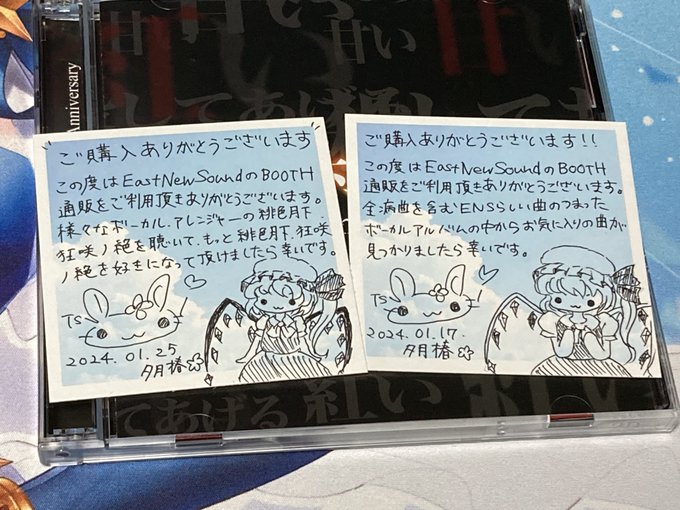 Anniversary
甘い
ご購入ありがとうございます
この度はEastNewSoundのBOOTH
通販をご利用頂きありがとうございます。
様々なボーカル、アレンジャーの緋色月下、
狂咲ノ絶を聴いて、もっと緋色月下、狂咲
ノ絶を好きになって頂けましたら幸いです。
TS
2024.01.25
夕月椿
ご購入ありがとうございます!!
この度はEastNewSoundのBOOTH
通販をご利用頂きありがとうございます。
全病曲を含むENSらしい曲のつまった
ボーカルアルバムの中からお気に入りの曲が
見つかりましたら幸いです。
TS
2024.01.17.
夕月椿
てあげる 紅い